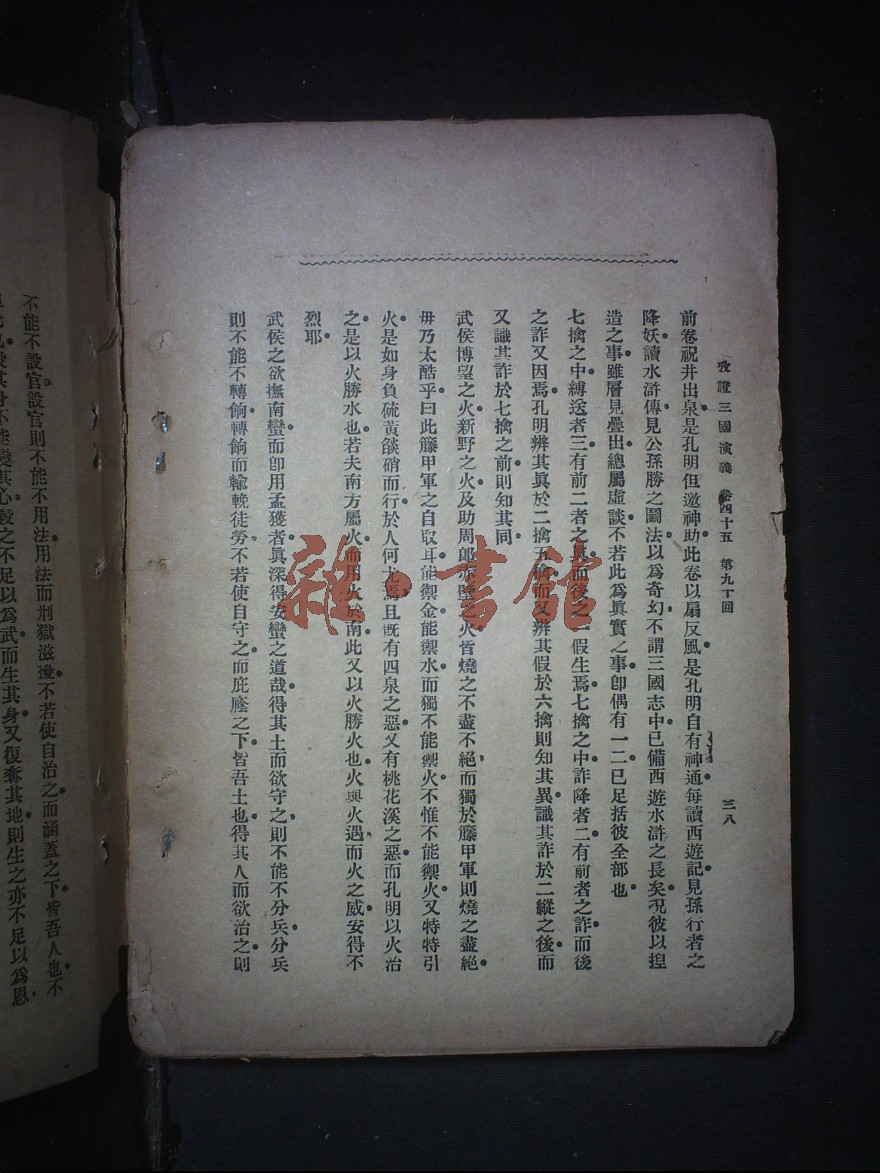 改證三國演義 卷四十五 第九十回 三八
前卷祝井出泉是孔明但邀神助此卷以扇反風是孔明自有神通每讀西遊記見孫行者之
降妖讀水滸傳見公孫勝之鬭法以爲奇幻不謂三國志中已備西遊水滸之長矣况彼以揑
造之事雖層見疊出總屬虛談不若此爲眞實之事卽偶有一二已足括彼全部也
七擒之中縛送者三有前二者之眞而後之一假生焉七擒之中詐降者二有前者之詐而後
之詐又因焉孔明辨其眞於二擒五擒而又辨其假於六擒則知其異識其詐於二縱之後而
又識其詐於七擒之前則知其同
武侯博望之火新野之火及助周郎赤壁之火皆燒之不盡不絕而獨於籐甲軍則燒之盡絕
毋乃太酷乎曰此籐甲軍之自取耳能禦金能禦水而獨不能禦火不惟不能禦火又特特引
火是如身負硫黃燄硝而行於人何尤焉且旣有四泉之惡又有桃花溪之惡而孔明以火治
之是以火勝水也若夫南方屬火而用火於南此又以火勝火也火與火遇而火之威安得不
烈耶
武侯之欲撫南蠻而卽用孟獲者眞深得安蠻之道哉得其土而欲守之則不能不分兵分兵
則不能不轉餉轉餉而輸輓徒勞不若使自守之而庇廕之下皆吾土也得其人而欲治之則
不能不設官設官則不能不用法用法而刑獄滋擾不若使自治之而涵蓋之下皆吾人也不
其身不能變其心殺之不足以爲武而生其身又復奪其地則生之亦不足以爲恩
雜·書館